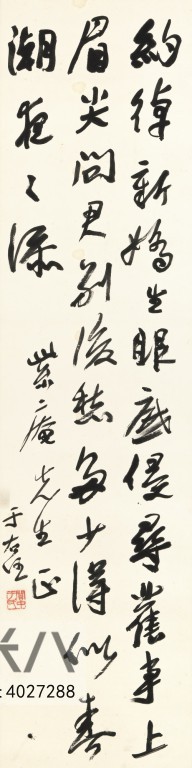 約綽新嬌生眼底侵尋舊事上
眉尖問君別後愁多少得似春
潮夜々添
紫庵先生正
于右任
: 4027288